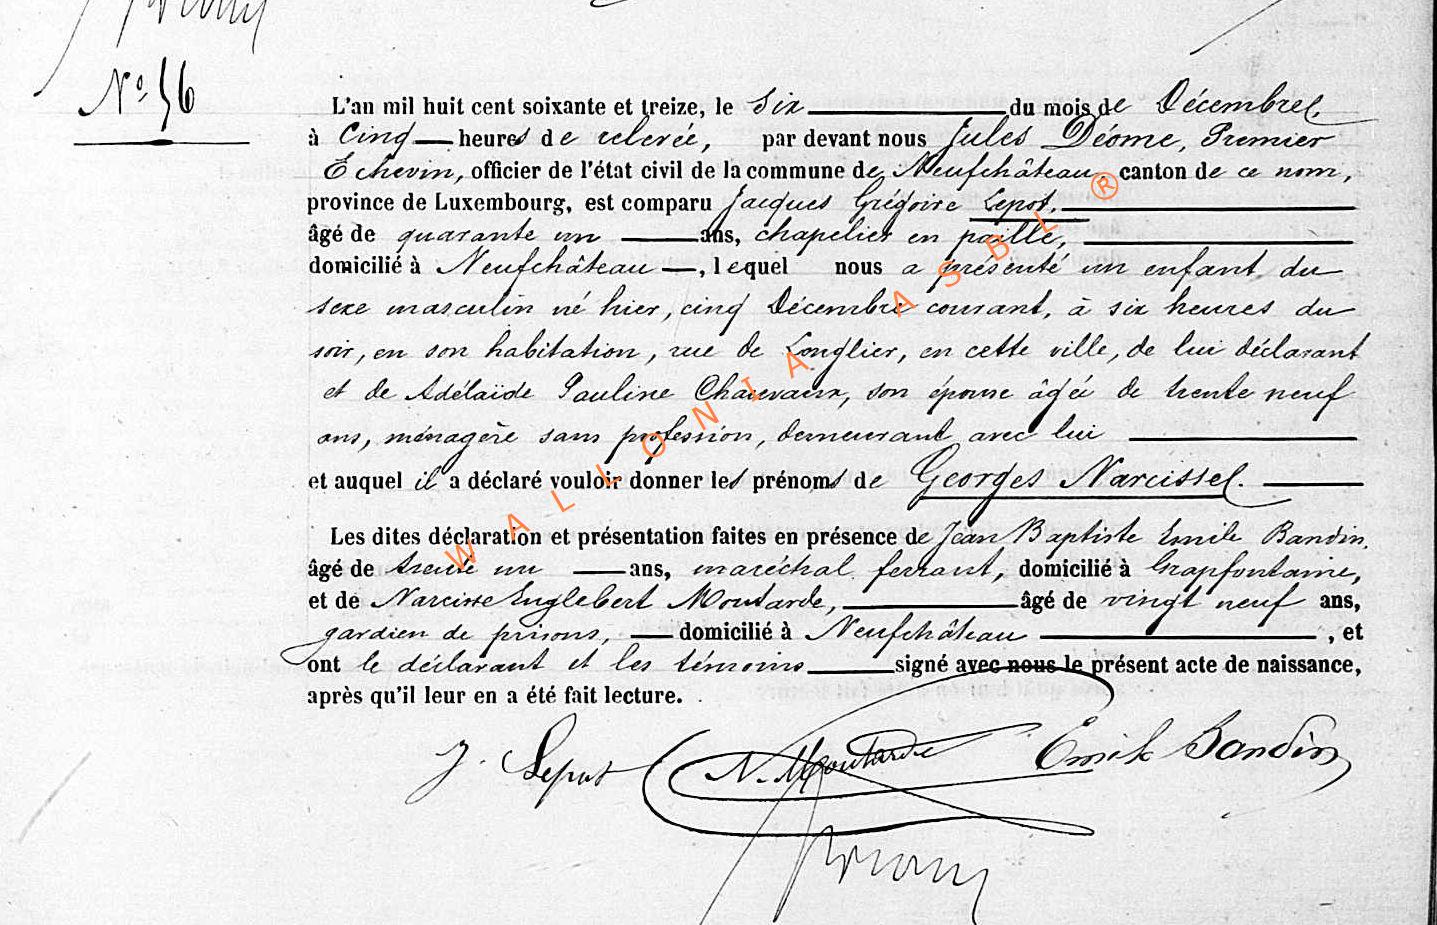 N° 56
L'an mil huit cent soixante et treize, le six du mois de Décembre,
à cinq heures de relevée, par devant nous Jules Déome, Premier
Echevin, officier de l'état civil de la commune de Neufchâteau, canton de ce nom,
province de Luxembourg, est comparu Jacques Grégoire Lepot,
âgé de quarante un ans, chapelier en paille,
domicilié à Neufchâteau, lequel nous a présenté un enfant du
sexe masculin né hier, cinq Décembre courant, à six heures du
soir, en son habitation, rue de Longlier, en cette ville, de lui déclarant
et de Adélaïde Pauline Charvaux, son épouse âgée de trente neuf
ans, ménagère sans profession, demeurant avec lui
et auquel il a déclaré vouloir donner les prénoms de Georges Narcisse.
Les dites déclaration et présentation faites en présence de Jean Baptiste Emile Bandin,
âgé de trente un ans, maréchal ferrant, domicilié à Grapfontaine,
et de Narcisse Englebert Moutarde, âgé de vingt neuf ans,
gardien de prisons, domicilié à Neufchâteau, et
ont le déclarant et les témoins signé avec nous le présent acte de naissance,
après qu'il leur en a été fait lecture.
J. Lepot N. Moutarde Emile Bandin
WALLONIA ASBL ®